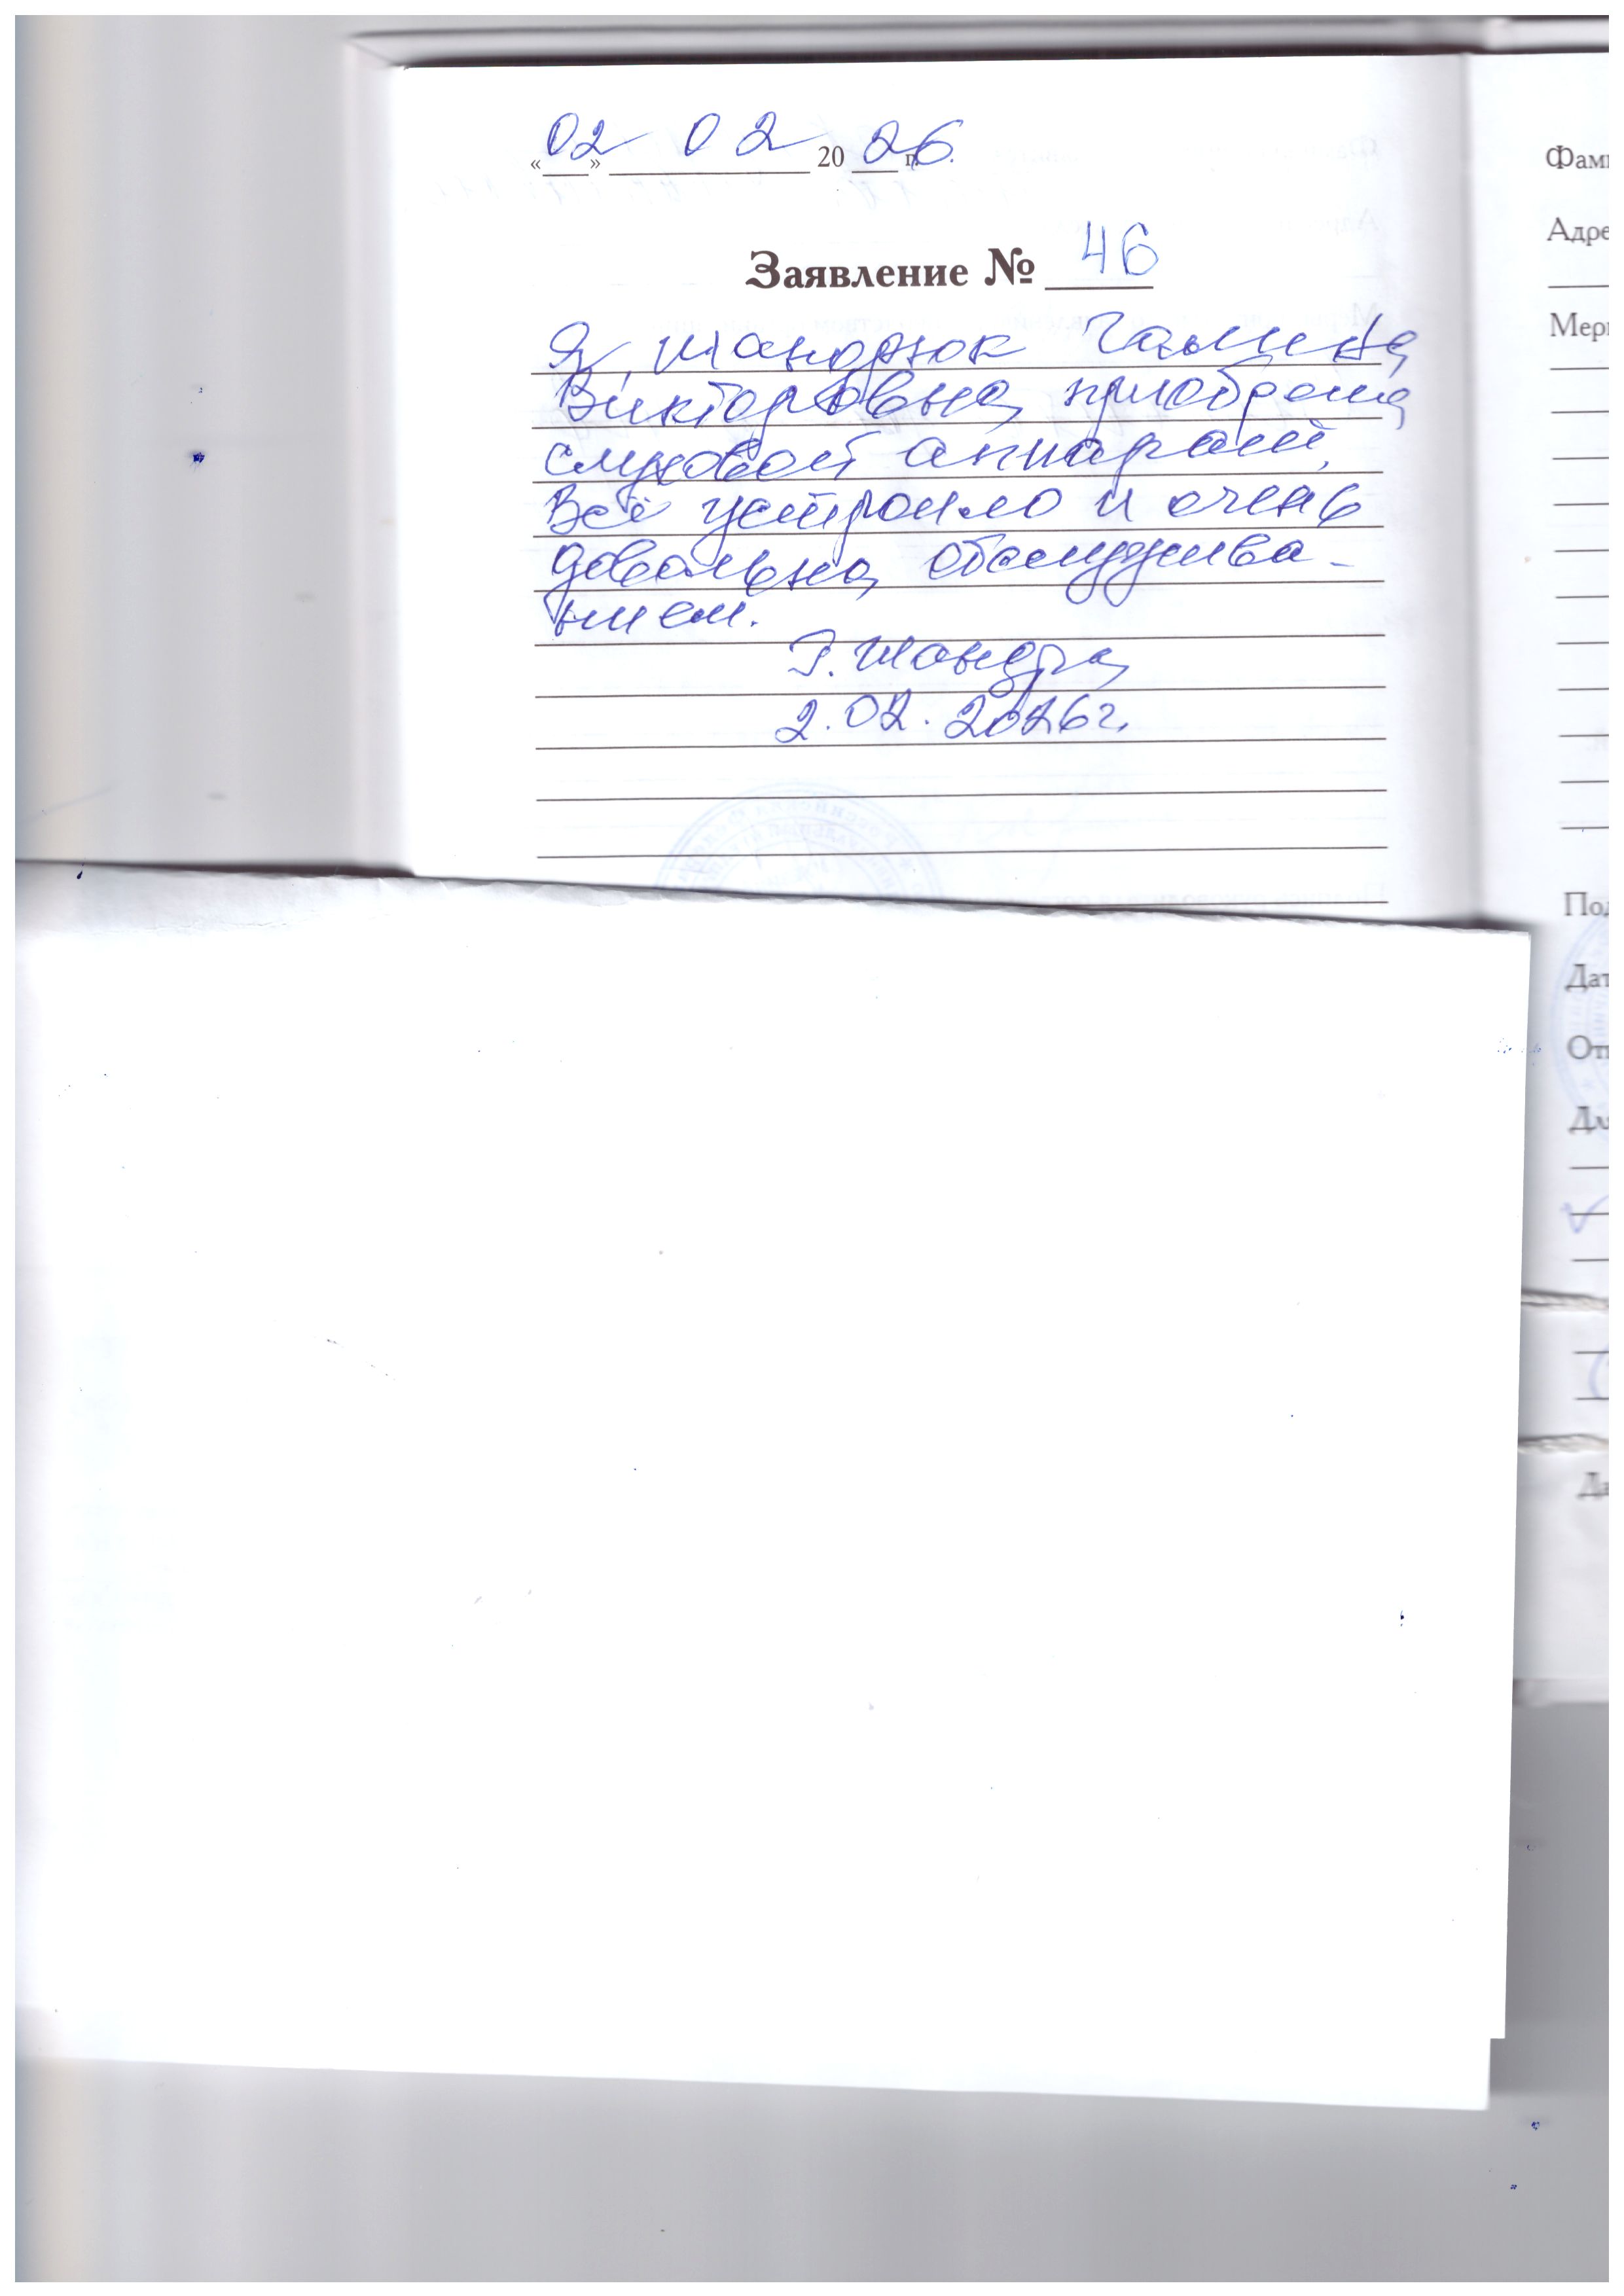 «02» 02 20 26 г.
Заявление № 46
Я, Галина
Викторовна, приобрела
слуховой аппарат,
Всё устроило и очень
довольна обслужива-
нием.
2.02.2026г.
Фам
Адре
Мер
Под
Дат
От
Да